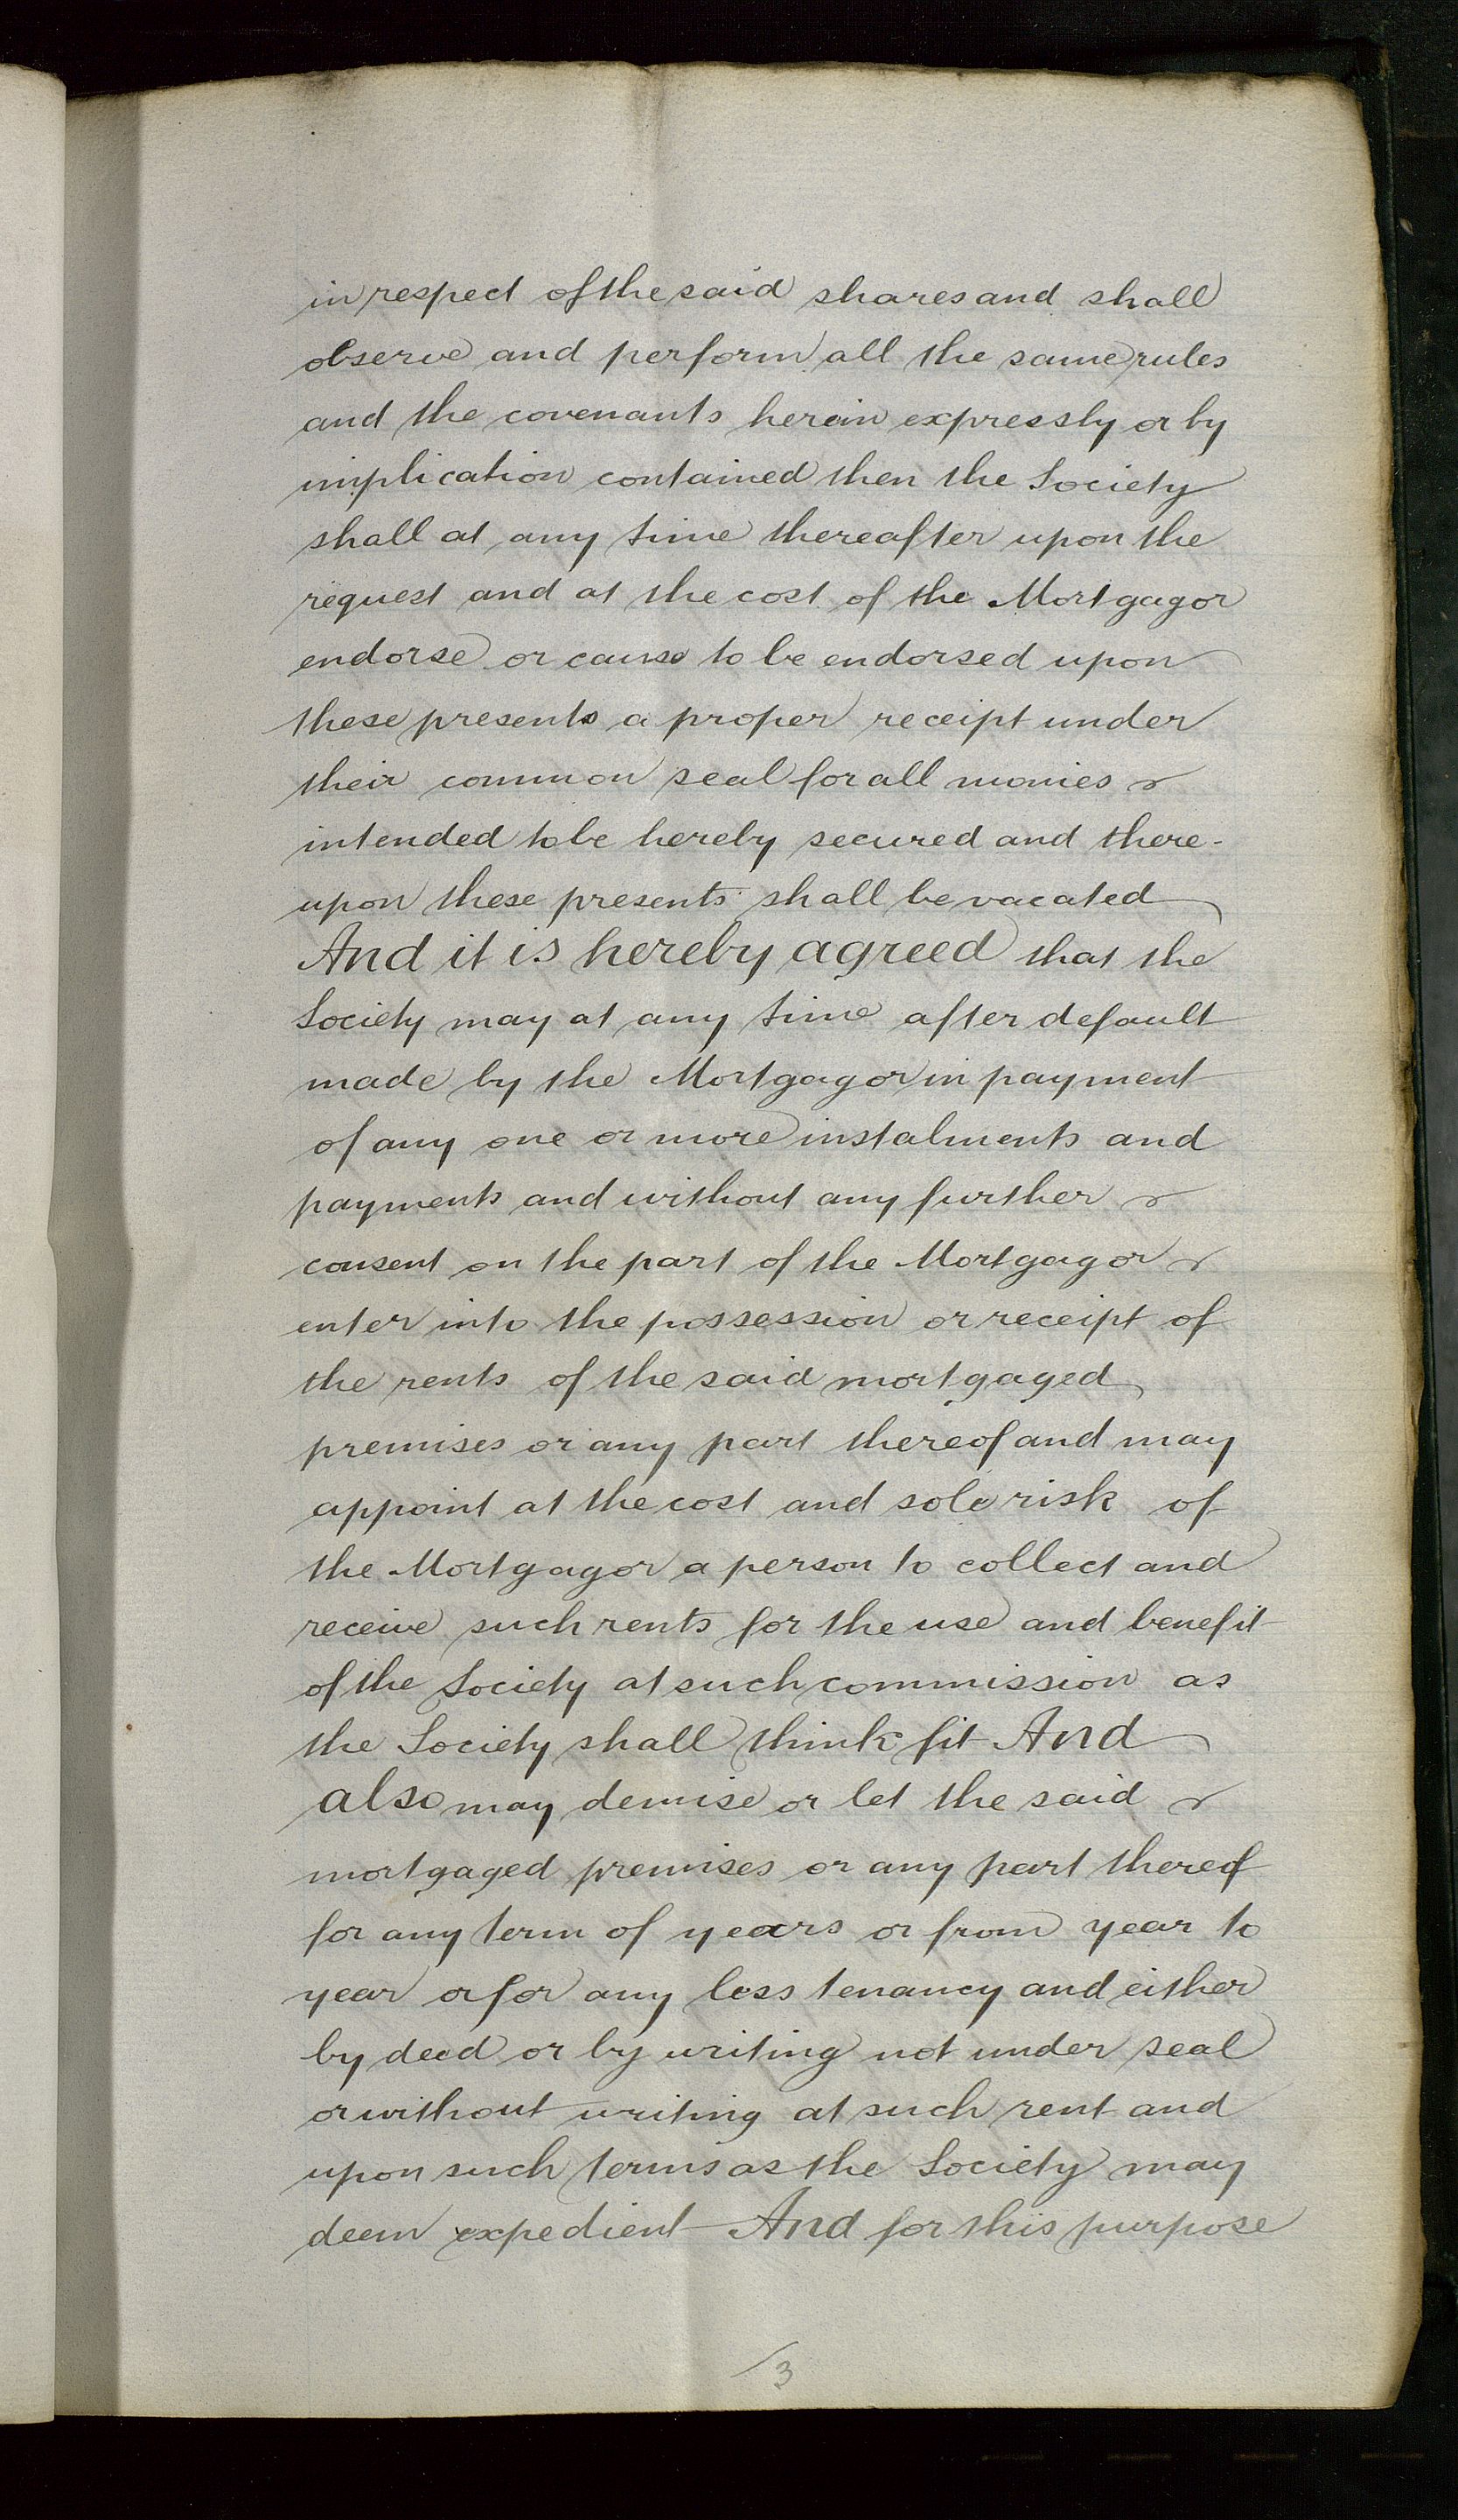 in respect of the said shares and shall
observe and perform all the same rules
and the covenants herein expressly or by
implication contained then the Society
shall at any time thereafter upon the
request and at the cost of the Mortgagor
endorse or cause to be endorsed upon
these presents a proper receipt under
their common seal for all monies
intended to be hereby secured and there-
upon these presents shall be vacated
And it is hereby agreed that the
Society may at any time after default
made by the Mortgagor in payment
of any one or more instalments and
payments and without any further
consent on the part of the Mortgagor
enter into the possession or receipt of
the rents of the said mortgaged
premises or any part thereof and may
appoint at the cost and sole risk of
the Mortgagor a person to collect and
receive such rents for the use and benefit
of the Society at such commission as
the Society shall think fit And
also may demise or let the said
mortgaged premises or any part thereof
for any term of years or from year to
year or for any less tenancy and either
by deed or by writing not under seal
or without writing at such rent and
upon such terms as the Society may
deem expedient And for this purpose
3